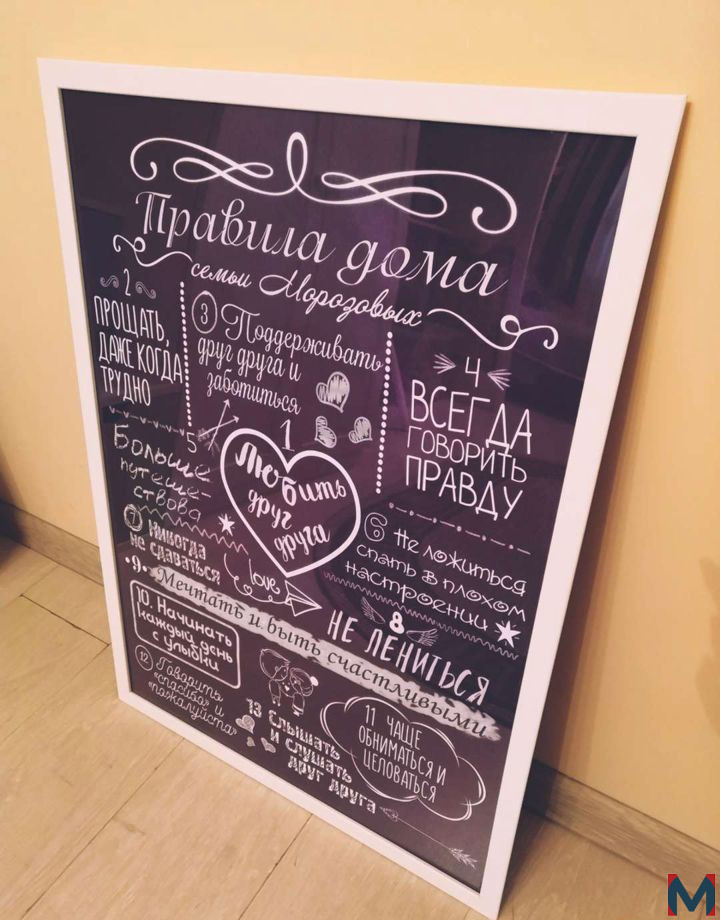 Правила дома
семьи Морозовых
2
ПРОЩАТЬ,
ДАЖЕ КОГДА
ТРУДНО
3 Поддерживать
друг друга и
заботиться
4
ВСЕГДА
ГОВОРИТЬ
ПРАВДУ
1
Любить
друг
друга
5
Больше
путеше-
ствова
6 Не ложиться
спать в плохом
настроении
7 Никогда
не сдаваться
love
8
НЕ ЛЕНИТЬСЯ
•9• Мечтать и быть счастливыми
10. Начинать
каждый день
с улыбки
11 ЧАЩЕ
ОБНИМАТЬСЯ И
ЦЕЛОВАТЬСЯ
12 Говорить
«спасибо» и
«пожалуйста»
13 СЛЫШАТЬ
И СЛУШАТЬ
ДРУГ ДРУГА
M